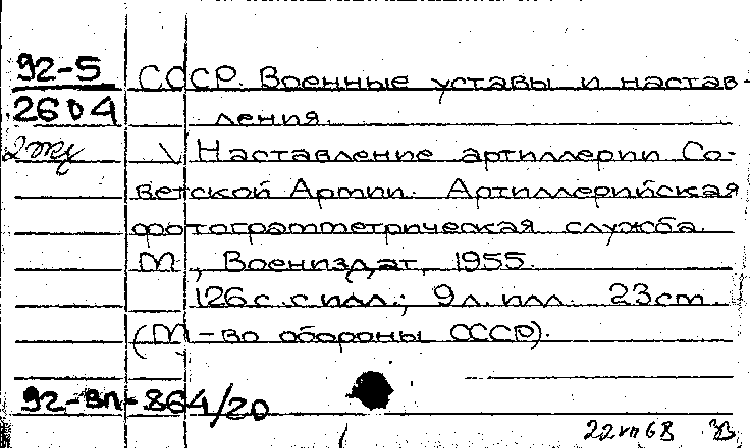 92-5 СССР. Военные уставы и настав-
2604 ления.
2 экз
Наставление артиллерии Со-
ветской Армии. Артиллерийская
фотограмметрическая служба.
М., Воениздат, 1955.
126 с. с илл.; 9 л. илл. 23 см.
(М-во обороны СССР).
92-вп-864/20